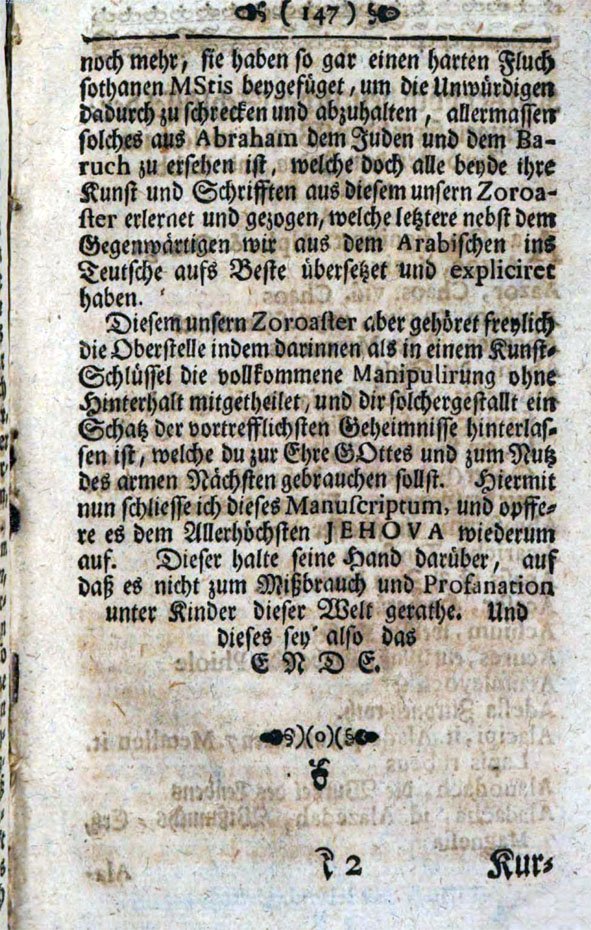 ( 147 )
noch mehr, sie haben so gar einen harten Fluch
sothanen MStis beygefüget, um die Unwürdigen
dadurch zu schrecken und abzuhalten, allermassen
solches aus Abraham dem Juden und dem Ba-
ruch zu ersehen ist, welche doch alle beyde ihre
Kunst und Schrifften aus diesem unsern Zoroa-
ster erlernet und gezogen, welche letztere nebst dem
Gegenwärtigen wir aus dem Arabischen ins
Teutsche aufs Beste übersetzet und expliciret
haben.
Diesem unsern Zoroaster aber gehöret freylich
die Oberstelle indem darinnen als in einem Kunst-
Schlüssel die vollkommene Manipulirung ohne
Hinterhalt mitgetheilet, und dir solchergestallt ein
Schatz der vortrefflichsten Geheimnisse hinterlas-
sen ist, welche du zur Ehre GOttes und zum Nutz
des armen Nächsten gebrauchen sollst. Hiermit
nun schliesse ich dieses Manuscriptum, und opffe-
re es dem Allerhöchsten JEHOVA wiederum
auf. Dieser halte seine Hand darüber, auf
daß es nicht zum Mißbrauch und Profanation
unter Kinder dieser Welt gerathe. Und
dieses sey also das
ENDE.
)(o)(
2 Kur-